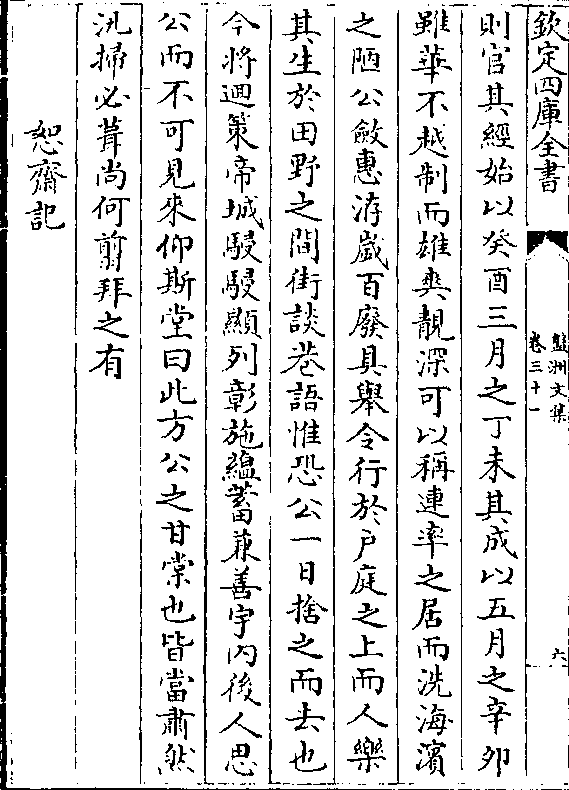 欽定四庫全書
盤洲文集
卷三十一
六
則官其經始以癸酉三月之丁未其成以五月之辛卯
雖華不越制而雄爽靚深可以稱連率之居而洗海濱
之陋公斂惠㳺歲百廢具舉令行於户庭之上而人樂
其生於田野之間街談巷語惟恐公一日捨之而去也
今將迴策帝城駸駸顯列彰施緼蓄蒹善宇内後人思
公而不可見來仰斯堂曰此方公之甘棠也皆當肅然
汎掃必葺尚何翦拜之有
恕齋記